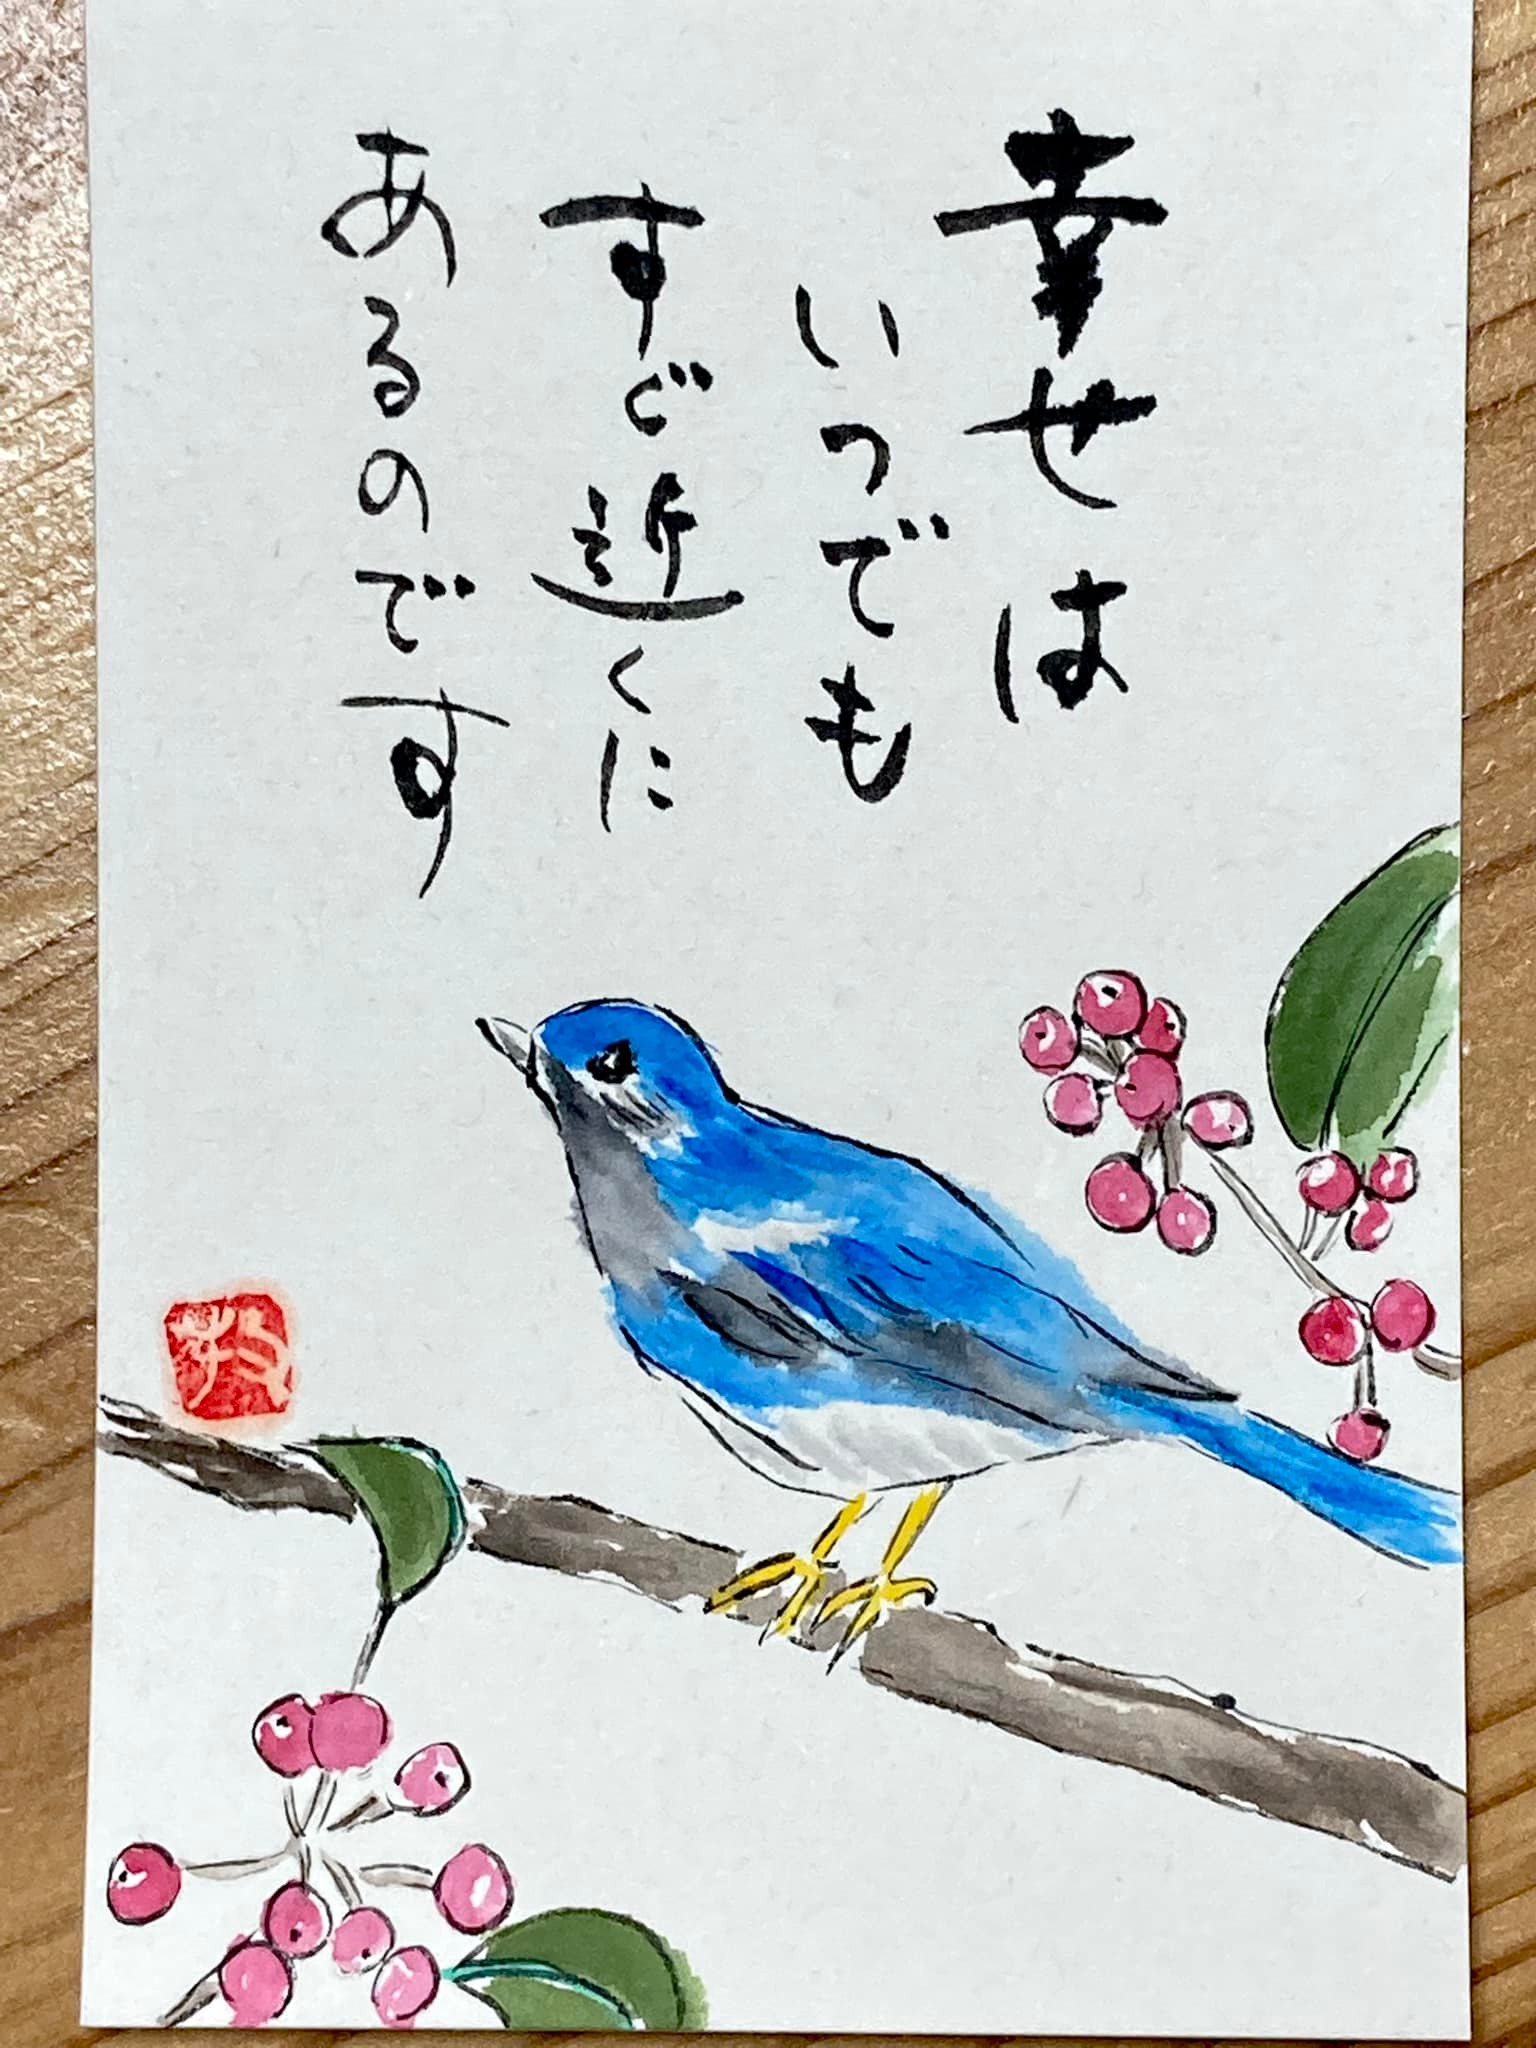 幸せは
いつでも
すぐ近くに
あるのです